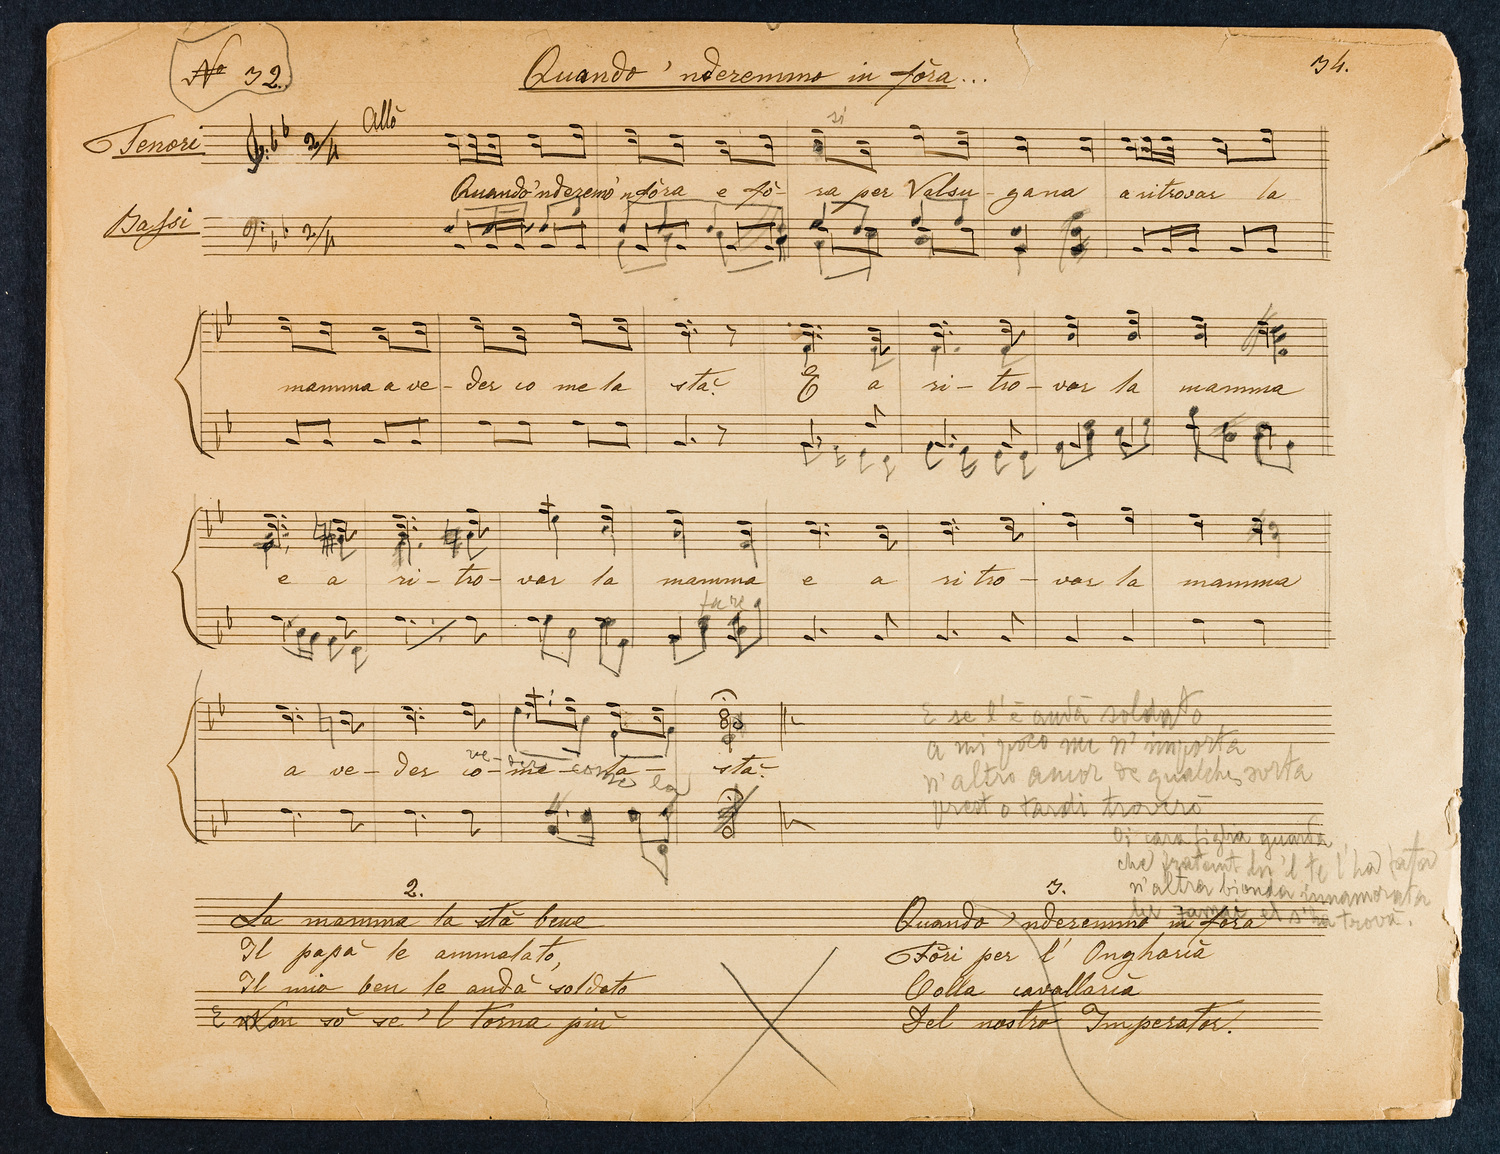 No 32.
Quando 'nderemmo in fòra...
34.
Allo
Tenori
2/4
si
Quando 'nderemo 'n fòra e fò- ra per Valsu- gana a ritrovar la
Bassi
2/4
mamma a ve- der co me la stà.
E a ri- tro- var la mamma
e a ri- tro- var la mamma e a ri tro- var la mamma
fare
a ve- der co- me la stà.
ve- dere come la
E se l'è andà soldato
a mi poco me n' importa
n'altro amor de qualche sorta
prest o tardi troverò
Oi cara figlia guarda
che l'ha fata
n'altra bionda innamorata
el s'ha trovà.
2.
La mamma la stà bene
Il papà le ammalato,
Il mio ben le andà soldato
E Non sò se 'l torna più
3.
Quando 'nderemmo in fòra
Fòri per l' Ongharia
Colla cavallaria
Del nostro Imperator.